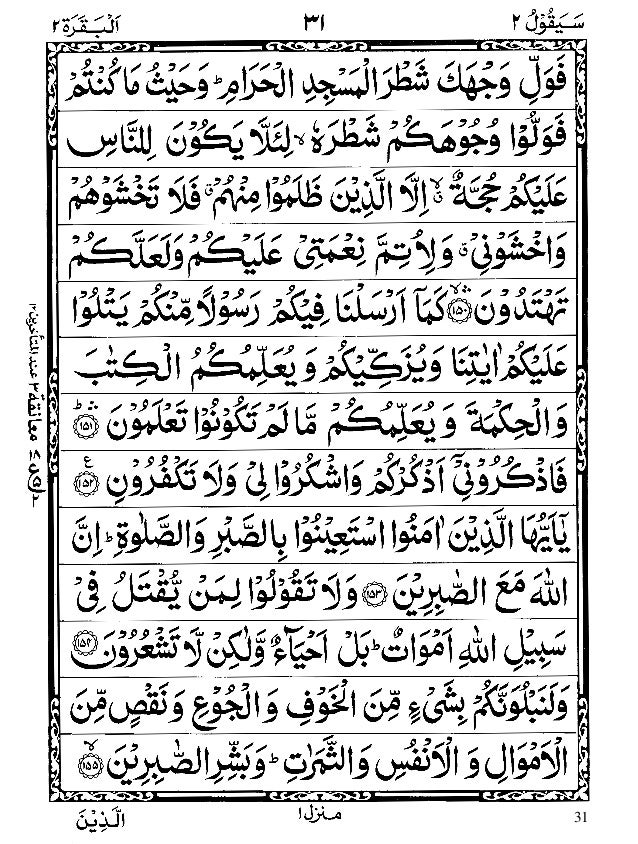 سَيَقُوْلُ ٢ ٣١ اَلْبَقَرَة ٢
فَوَلِّ وَجْهَكَ شَطْرَ الْمَسْجِدِ الْحَرَامِ ؕ وَحَيْثُ مَا كُنْتُمْ
فَوَلُّوْا وُجُوْهَكُمْ شَطْرَهٗ ۙ لِئَلَّا يَكُوْنَ لِلنَّاسِ
عَلَيْكُمْ حُجَّةٌ ۙۗ اِلَّا الَّذِيْنَ ظَلَمُوْا مِنْهُمْ ۗ فَلَا تَخْشَوْهُمْ
وَاخْشَوْنِيْ ۗ وَلِاُتِمَّ نِعْمَتِيْ عَلَيْكُمْ وَلَعَلَّكُمْ
تَهْتَدُوْنَ ۙۛ ﴿١٥٠﴾ كَمَاۤ اَرْسَلْنَا فِيْكُمْ رَسُوْلًا مِّنْكُمْ يَتْلُوْا
عَلَيْكُمْ اٰيٰتِنَا وَيُزَكِّيْكُمْ وَيُعَلِّمُكُمُ الْكِتٰبَ
وَالْحِكْمَةَ وَيُعَلِّمُكُمْ مَّا لَمْ تَكُوْنُوْا تَعْلَمُوْنَ ؕۛ ﴿١٥١﴾
فَاذْكُرُوْنِيْۤ اَذْكُرْكُمْ وَاشْكُرُوْا لِيْ وَلَا تَكْفُرُوْنِ ﴿١٥٢﴾ ع
يٰۤاَيُّهَا الَّذِيْنَ اٰمَنُوا اسْتَعِيْنُوْا بِالصَّبْرِ وَالصَّلٰوةِ ؕ اِنَّ
اللّٰهَ مَعَ الصّٰبِرِيْنَ ﴿١٥٣﴾ وَلَا تَقُوْلُوْا لِمَنْ يُّقْتَلُ فِيْ
سَبِيْلِ اللّٰهِ اَمْوَاتٌ ؕ بَلْ اَحْيَآءٌ وَّلٰكِنْ لَّا تَشْعُرُوْنَ ﴿١٥٤﴾
وَلَنَبْلُوَنَّكُمْ بِشَيْءٍ مِّنَ الْخَوْفِ وَالْجُوْعِ وَنَقْصٍ مِّنَ
الْاَمْوَالِ وَ الْاَنْفُسِ وَالثَّمَرٰتِ ؕ وَبَشِّرِ الصّٰبِرِيْنَ ۙ ﴿١٥٥﴾
معانقة ٢ عند المتأخرين ١٢
اَلَّذِيْنَ منزل ١ 31